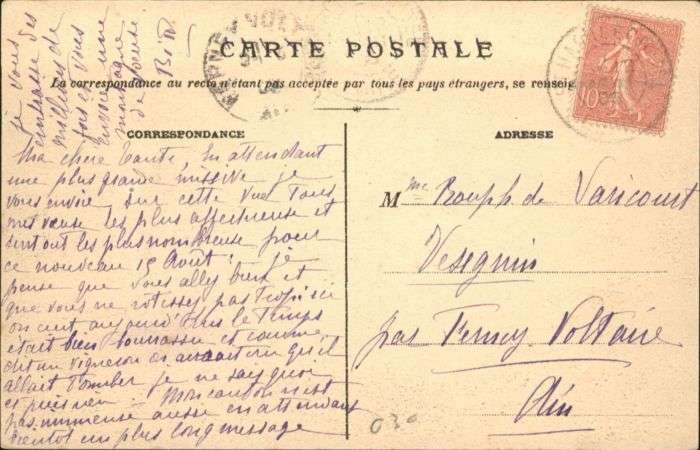 CARTE POSTALE
La correspondance au recto n'étant pas acceptée par tous les pays étrangers, se renseign
CORRESPONDANCE
Ma chere Tante, En attendant
une plus grande missive je
vous envoie sur cette vue tous
mes vœux les plus affectueuse et
surtout les plus nombreuse pour
ce nouveau 15 Août! je
pense que vous allez bien et
que vous ne rotissez pas trop; ici
on cuit aujourd'hui le temps
était bien bourrasse et comme
dit un vigneron on aurait cru qu'il
allait tomber je ne sais quoi
et puis rien Mon carton n'est
pas immense aussi en attendant
bientôt un plus long message
je vous
embrasse des
millions de
fois vous
envoie une
montagne
de
ADRESSE
Mme Rouph de Varicourt
Vesegnin
par Ferney Voltaire
Ain
030
10